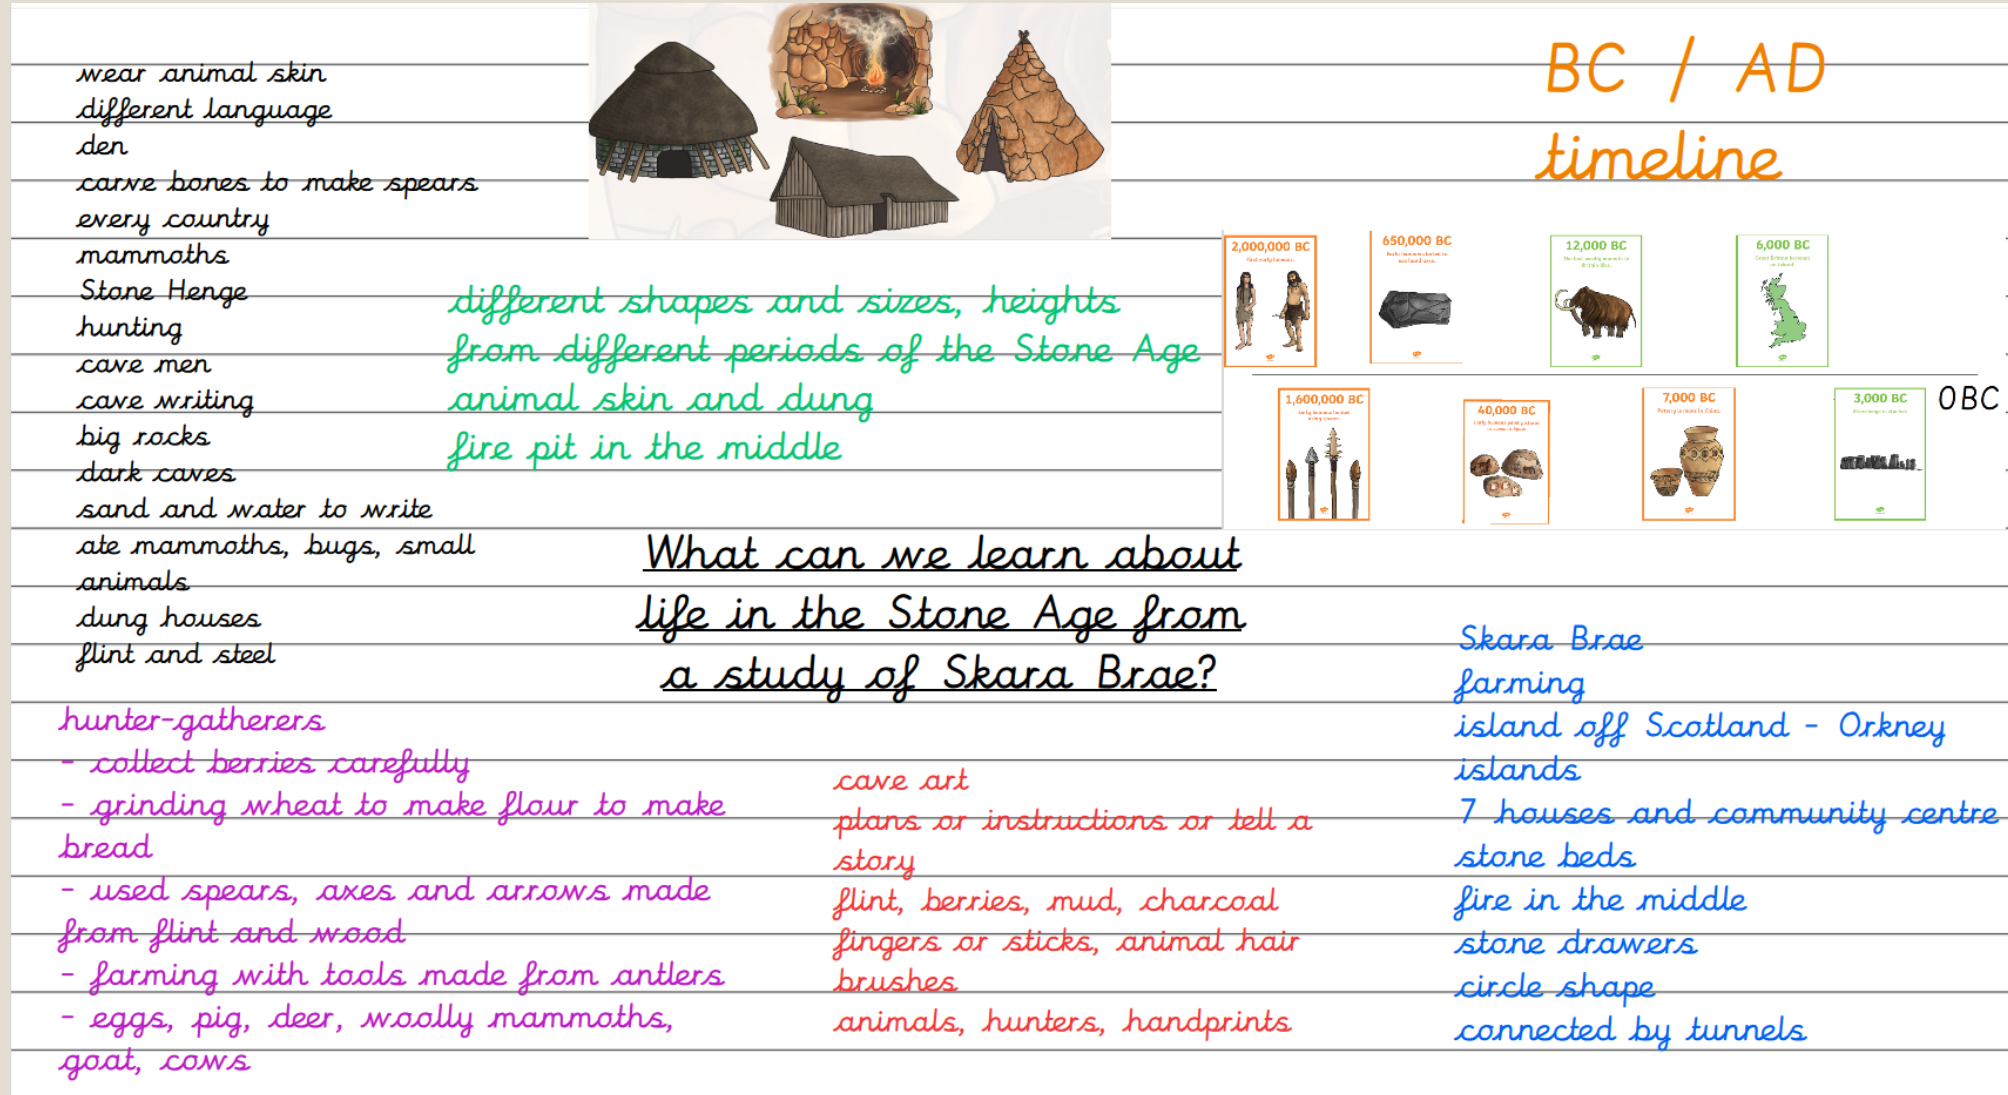 wear animal skin
different language
den
carve bones to make spears
every country
mammoths
Stone Henge
hunting
cave men
cave writing
big rocks
dark caves
sand and water to write
ate mammoths, bugs, small
animals
dung houses
flint and steel
different shapes and sizes, heights
from different periods of the Stone Age
animal skin and dung
fire pit in the middle
BC / AD
timeline
2,000,000 BC
First early humans.
650,000 BC
Early humans started to
use hand axes.
12,000 BC
6,000 BC
Great Britain becomes
an island.
1,600,000 BC
40,000 BC
Early humans paint pictures
in caves in Spain.
7,000 BC
Pottery is made in China.
3,000 BC
0BC
What can we learn about
life in the Stone Age from
a study of Skara Brae?
hunter-gatherers
- collect berries carefully
- grinding wheat to make flour to make
bread
- used spears, axes and arrows made
from flint and wood
- farming with tools made from antlers
- eggs, pig, deer, woolly mammoths,
goat, cows
cave art
plans or instructions or tell a
story
flint, berries, mud, charcoal
fingers or sticks, animal hair
brushes
animals, hunters, handprints
Skara Brae
farming
island off Scotland - Orkney
islands
7 houses and community centre
stone beds
fire in the middle
stone drawers
circle shape
connected by tunnels